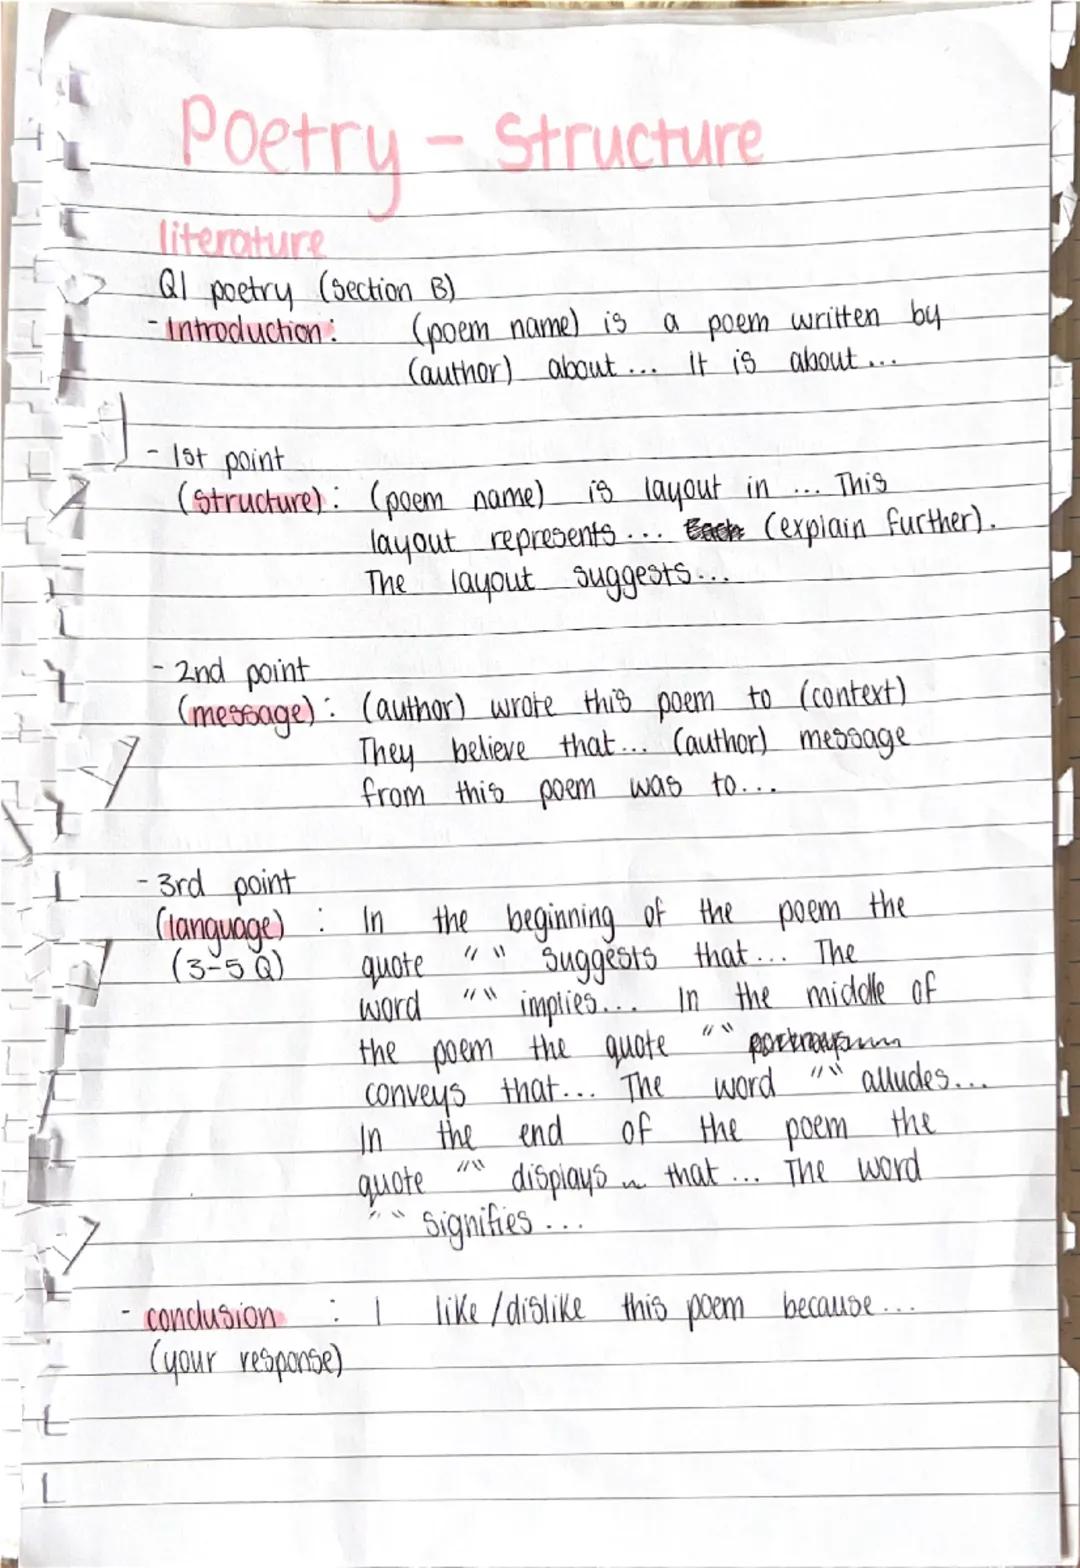 Poetry - Structure
literature
Q1 poetry (Section B)
- Introduction: (poem name) is a poem written by
(author) about ... It is about ...
- 1st point
(structure): (poem name) is layout in ... This
layout represents ... (explain further).
The layout suggests...
- 2nd point
(message): (author) wrote this poem to (context)
They believe that... (author) message
from this poem was to...
- 3rd point
(language) : In the beginning of the poem the
(3-5 Q) quote " " suggests that... The
word " " implies... In the middle of
the poem the quote " "
conveys that... The word " " alludes...
In the end of the poem the
quote " " displays that ... The word
" " signifies ...
- conclusion : I like /dislike this poem because ...
(your response)